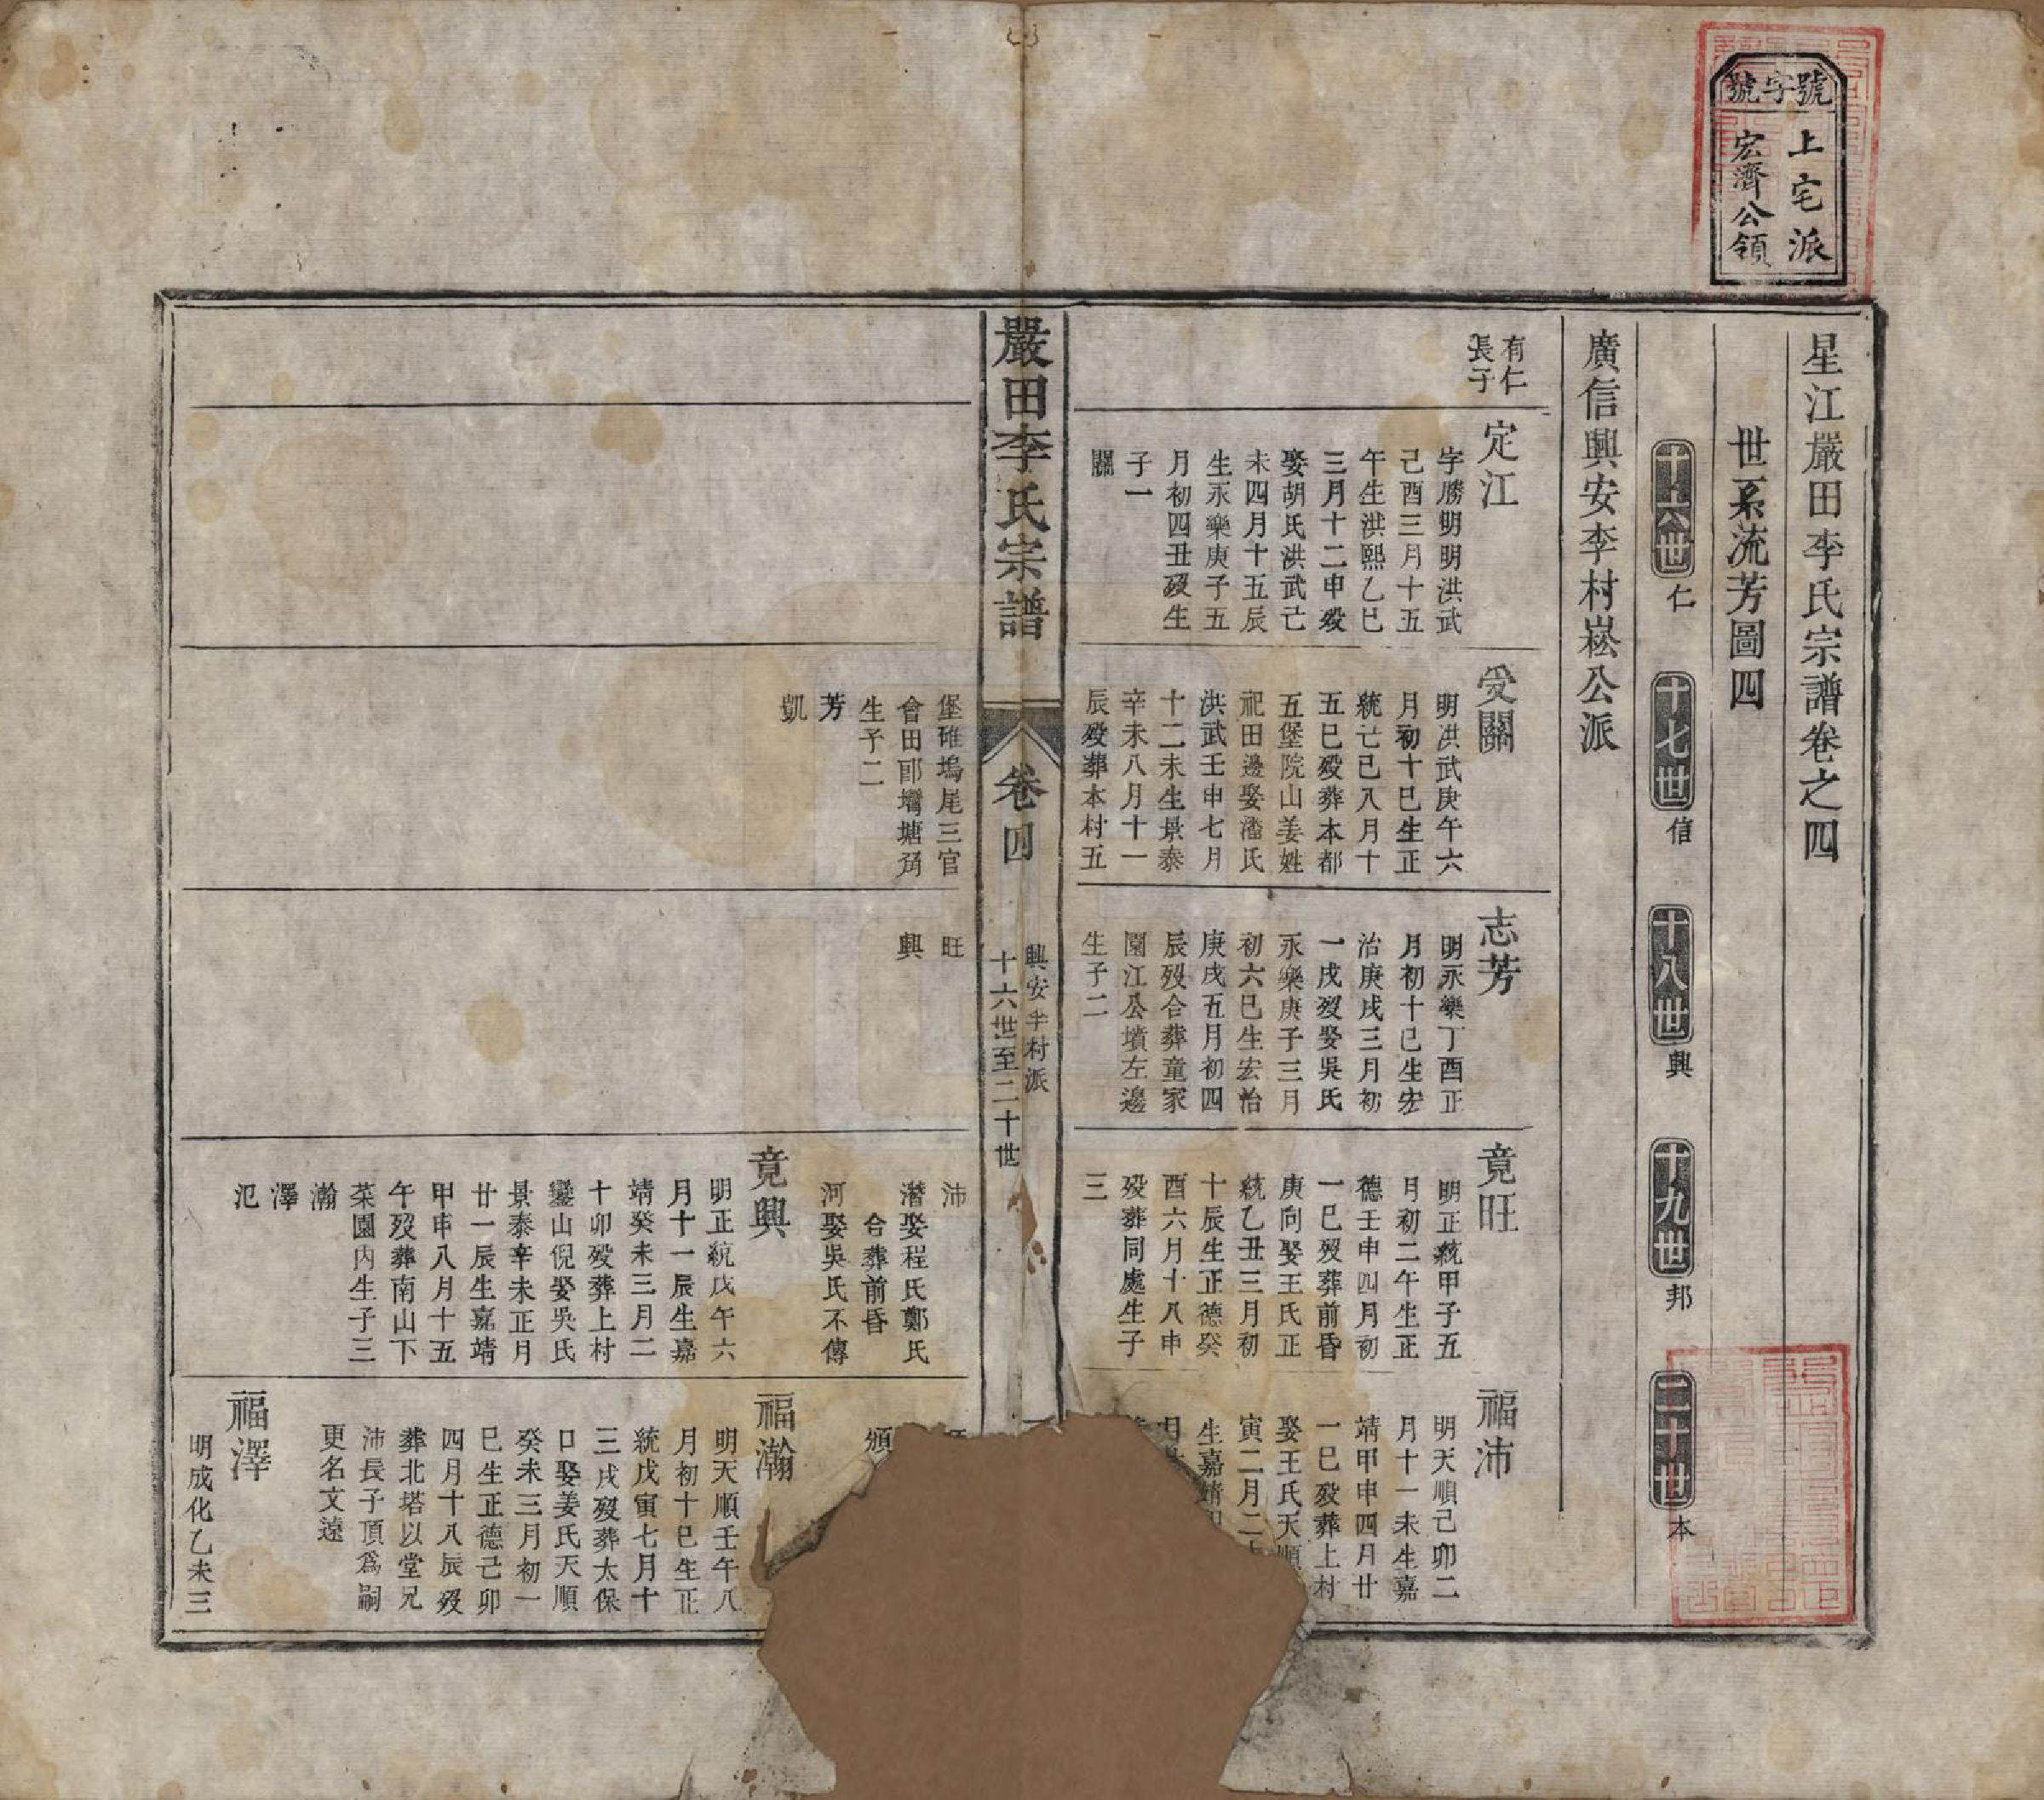 號字號
上宅派
宏濟公領
星江嚴田李氏宗譜卷之四
世系流芳圖四
十六世 仁
十七世 信
十八世 興
十九世 邦
二十世 本
廣信興安李村崧公派
有仁
長子
定江
字勝明明洪武
己酉三月十五
午生洪熙乙巳
三月十二申殁
娶胡氏洪武己
未四月十五辰
生永樂庚子五
月初四丑殁生
子一
關
受關
明洪武庚午六
月初十巳生正
統己巳八月十
五巳殁葬本都
五堡院山姜姓
祀田邊娶潘氏
洪武壬申七月
十二未生景泰
辛未八月十一
辰殁葬本村五
志芳
明永樂丁酉正
月初十巳生宏
治庚戌三月初
一戌殁娶吳氏
永樂庚子三月
初六巳生宏治
庚戌五月初四
辰殁合葬童家
園江公墳左邊
生子二
竟旺
明正統甲子五
月初二午生正
德壬申四月初
一巳殁葬前昏
庚向娶王氏正
統乙丑三月初
十辰生正德癸
酉六月十八申
殁葬同處生子
三
福沛
明天順己卯二
月十一未生嘉
靖甲申四月廿
一巳殁葬上村
娶王氏天順
寅二月二
生嘉靖
嚴田李氏宗譜
卷四
興安李村派
十六世至二十世
堡碓塢尾三官
會田郎墈塘角
生子二
芳
凱
旺
興
沛
潛娶程氏鄭氏
合葬前昏
河娶吳氏不傳
竟興
明正統戊午六
月十一辰生嘉
靖癸未三月二
十卯殁葬上村
鑾山倪娶吳氏
景泰辛未正月
廿一辰生嘉靖
甲申八月十五
午殁葬南山下
菜園內生子三
瀚
澤
氾
頒
福瀚
明天順壬午八
月初十巳生正
統戊寅七月十
三戌殁葬太保
口娶姜氏天順
癸未三月初一
巳生正德己卯
四月十八辰殁
葬北塔以堂兄
沛長子頂爲嗣
更名文遠
福澤
明成化乙未三